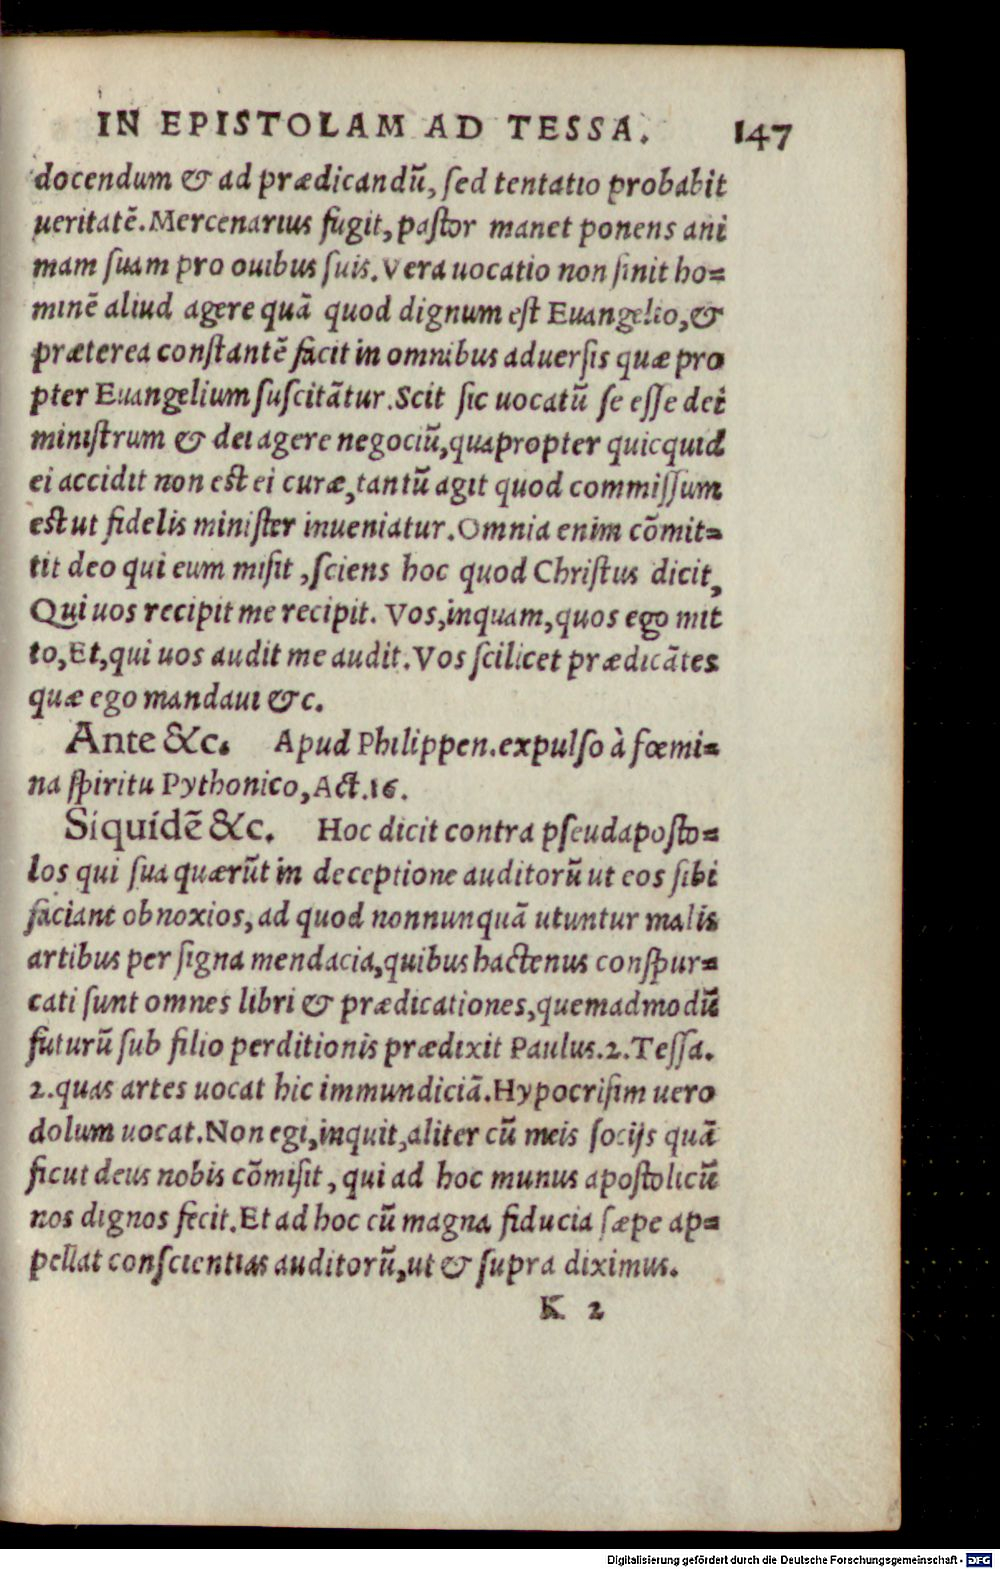 IN EPISTOLAM AD TESSA. 147
docendum & ad prædicandũ, ſed tentatio probabit
ueritatẽ. Mercenarius fugit, paſtor manet ponens ani
mam ſuam pro ouibus ſuis. Vera uocatio non ſinit ho=
minẽ aliud agere quã quod dignum eſt Euangelio, &
præterea conſtantẽ facit in omnibus aduerſis quæ pro
pter Euangelium ſuſcitãtur. Scit ſic uocatũ ſe eſſe dei
miniſtrum & dei agere negociũ, quapropter quicquid
ei accidit non est ei curæ, tantũ agit quod commiſſum
est ut fidelis miniſter inueniatur. Omnia enim cõmit=
tit deo qui eum miſit, ſciens hoc quod Chriſtus dicit,
Qui uos recipit me recipit. Vos, inquam, quos ego mit
to, Et, qui uos audit me audit. Vos ſcilicet prædicãtes
quæ ego mandaui &c.
Ante &c. Apud Philippen. expulſo à fœmi=
na ſpiritu Pythonico, Act. 16.
Siquidẽ &c. Hoc dicit contra pſeudapoſto=
los qui ſua quærũt in deceptione auditorũ ut eos ſibi
faciant obnoxios, ad quod nonnunquã utuntur malis
artibus per ſigna mendacia, quibus hactenus conſpur=
cati ſunt omnes libri & prædicationes, quemadmodũ
futurũ ſub filio perditionis prædixit Paulus. 2. Teſſa.
2. quas artes uocat hic immundiciã. Hypocriſim uero
dolum uocat. Non egi, inquit, aliter cũ meis ſocijs quã
ſicut deus nobis cõmiſit, qui ad hoc munus apoſtolicũ
nos dignos fecit. Et ad hoc cũ magna fiducia ſæpe ap=
pellat conſcientias auditorũ, ut & ſupra diximus.
K 2
Digitalisierung gefördert durch die Deutsche Forschungsgemeinschaft - DFG